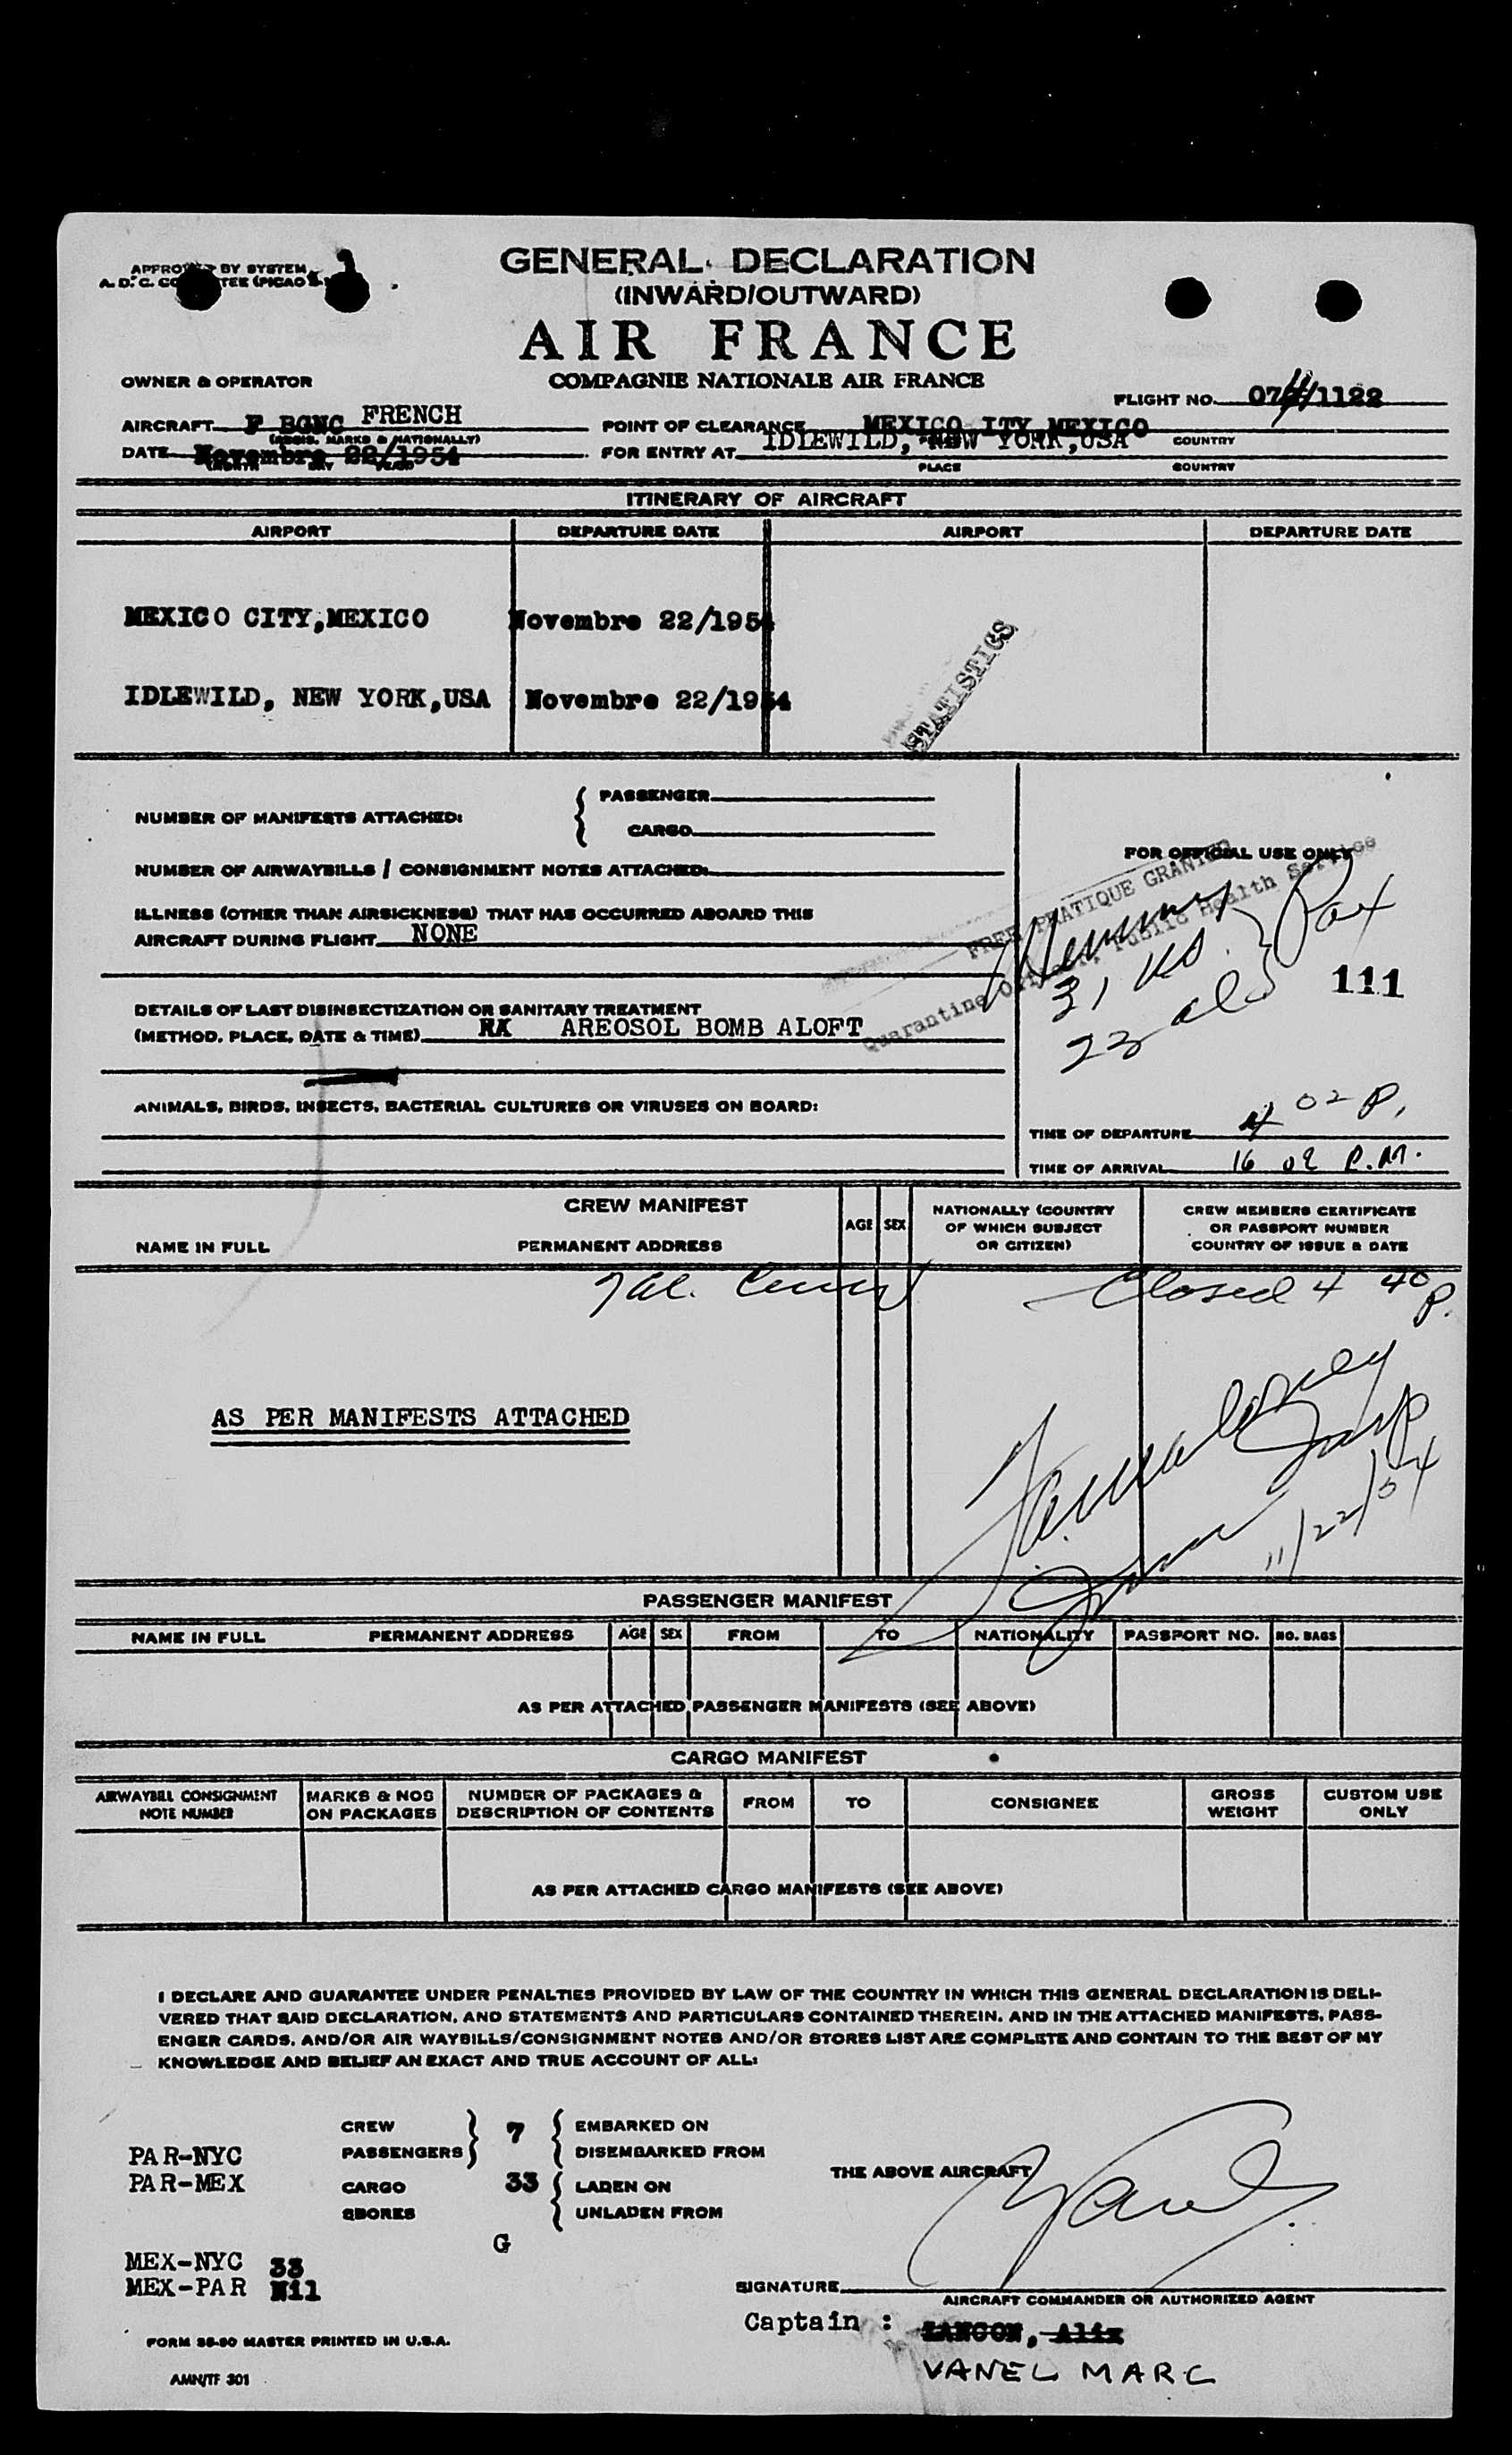 APPROVED BY SYSTEM
GENERAL DECLARATION
(INWARD/OUTWARD)
AIR FRANCE
COMPAGNIE NATIONALE AIR FRANCE
OWNER & OPERATOR
FLIGHT NO. /1122
AIRCRAFT F BGNC FRENCH
POINT OF CLEARANCE MEXICO ITY MEXICO
(REGIS. MARKS & NATIONALLY)
COUNTRY
DATE Novembre 22/1954
FOR ENTRY AT IDLEWILD, NEW YORK,USA
PLACE COUNTRY
ITINERARY OF AIRCRAFT
AIRPORT DEPARTURE DATE AIRPORT DEPARTURE DATE
MEXICO CITY,MEXICO Novembre 22/1954
IDLEWILD, NEW YORK,USA Novembre 22/1954
STATISTICS
NUMBER OF MANIFESTS ATTACHED:
PASSENGER
CARGO
NUMBER OF AIRWAYBILLS / CONSIGNMENT NOTES ATTACHED:
ILLNESS (OTHER THAN AIRSICKNESS) THAT HAS OCCURRED ABOARD THIS
AIRCRAFT DURING FLIGHT NONE
DETAILS OF LAST DISINSECTIZATION OR SANITARY TREATMENT
(METHOD, PLACE, DATE & TIME) AREOSOL BOMB ALOFT
ANIMALS, BIRDS, INSECTS, BACTERIAL CULTURES OR VIRUSES ON BOARD:
FOR OFFICIAL USE ONLY
FREE PRATIQUE GRANTED
Quarantine Officer, Public Health Service
31 us
23 als
Pax
111
TIME OF DEPARTURE 4 02 P.
TIME OF ARRIVAL 16 02 P.M.
CREW MANIFEST
NAME IN FULL PERMANENT ADDRESS
AGE SEX
NATIONALLY (COUNTRY
OF WHICH SUBJECT
OR CITIZEN)
CREW MEMBERS CERTIFICATE
OR PASSPORT NUMBER
COUNTRY OF ISSUE & DATE
Closed 4 40 P.
AS PER MANIFESTS ATTACHED
11/22/54
PASSENGER MANIFEST
NAME IN FULL PERMANENT ADDRESS AGE SEX FROM TO NATIONALITY PASSPORT NO. NO. BAGS
AS PER ATTACHED PASSENGER MANIFESTS (SEE ABOVE)
CARGO MANIFEST
AIRWAYBILL CONSIGNMENT
NOTE NUMBER
MARKS & NOS
ON PACKAGES
NUMBER OF PACKAGES &
DESCRIPTION OF CONTENTS
FROM TO CONSIGNEE
GROSS
WEIGHT
CUSTOM USE
ONLY
AS PER ATTACHED CARGO MANIFESTS (SEE ABOVE)
I DECLARE AND GUARANTEE UNDER PENALTIES PROVIDED BY LAW OF THE COUNTRY IN WHICH THIS GENERAL DECLARATION IS DELI-
VERED THAT SAID DECLARATION, AND STATEMENTS AND PARTICULARS CONTAINED THEREIN, AND IN THE ATTACHED MANIFESTS, PASS-
ENGER CARDS, AND/OR AIR WAYBILLS/CONSIGNMENT NOTES AND/OR STORES LIST ARE COMPLETE AND CONTAIN TO THE BEST OF MY
KNOWLEDGE AND BELIEF AN EXACT AND TRUE ACCOUNT OF ALL:
CREW 7 EMBARKED ON
PAR-NYC PASSENGERS DISEMBARKED FROM
PAR-MEX CARGO 33 LADEN ON
SBORES UNLADEN FROM
THE ABOVE AIRCRAFT
G
MEX-NYC 33
MEX-PAR Nil
SIGNATURE
AIRCRAFT COMMANDER OR AUTHORIZED AGENT
Captain : ZANCON, Alix
VANEL MARC
FORM 36-90 MASTER PRINTED IN U.S.A.
AMN/TF 301